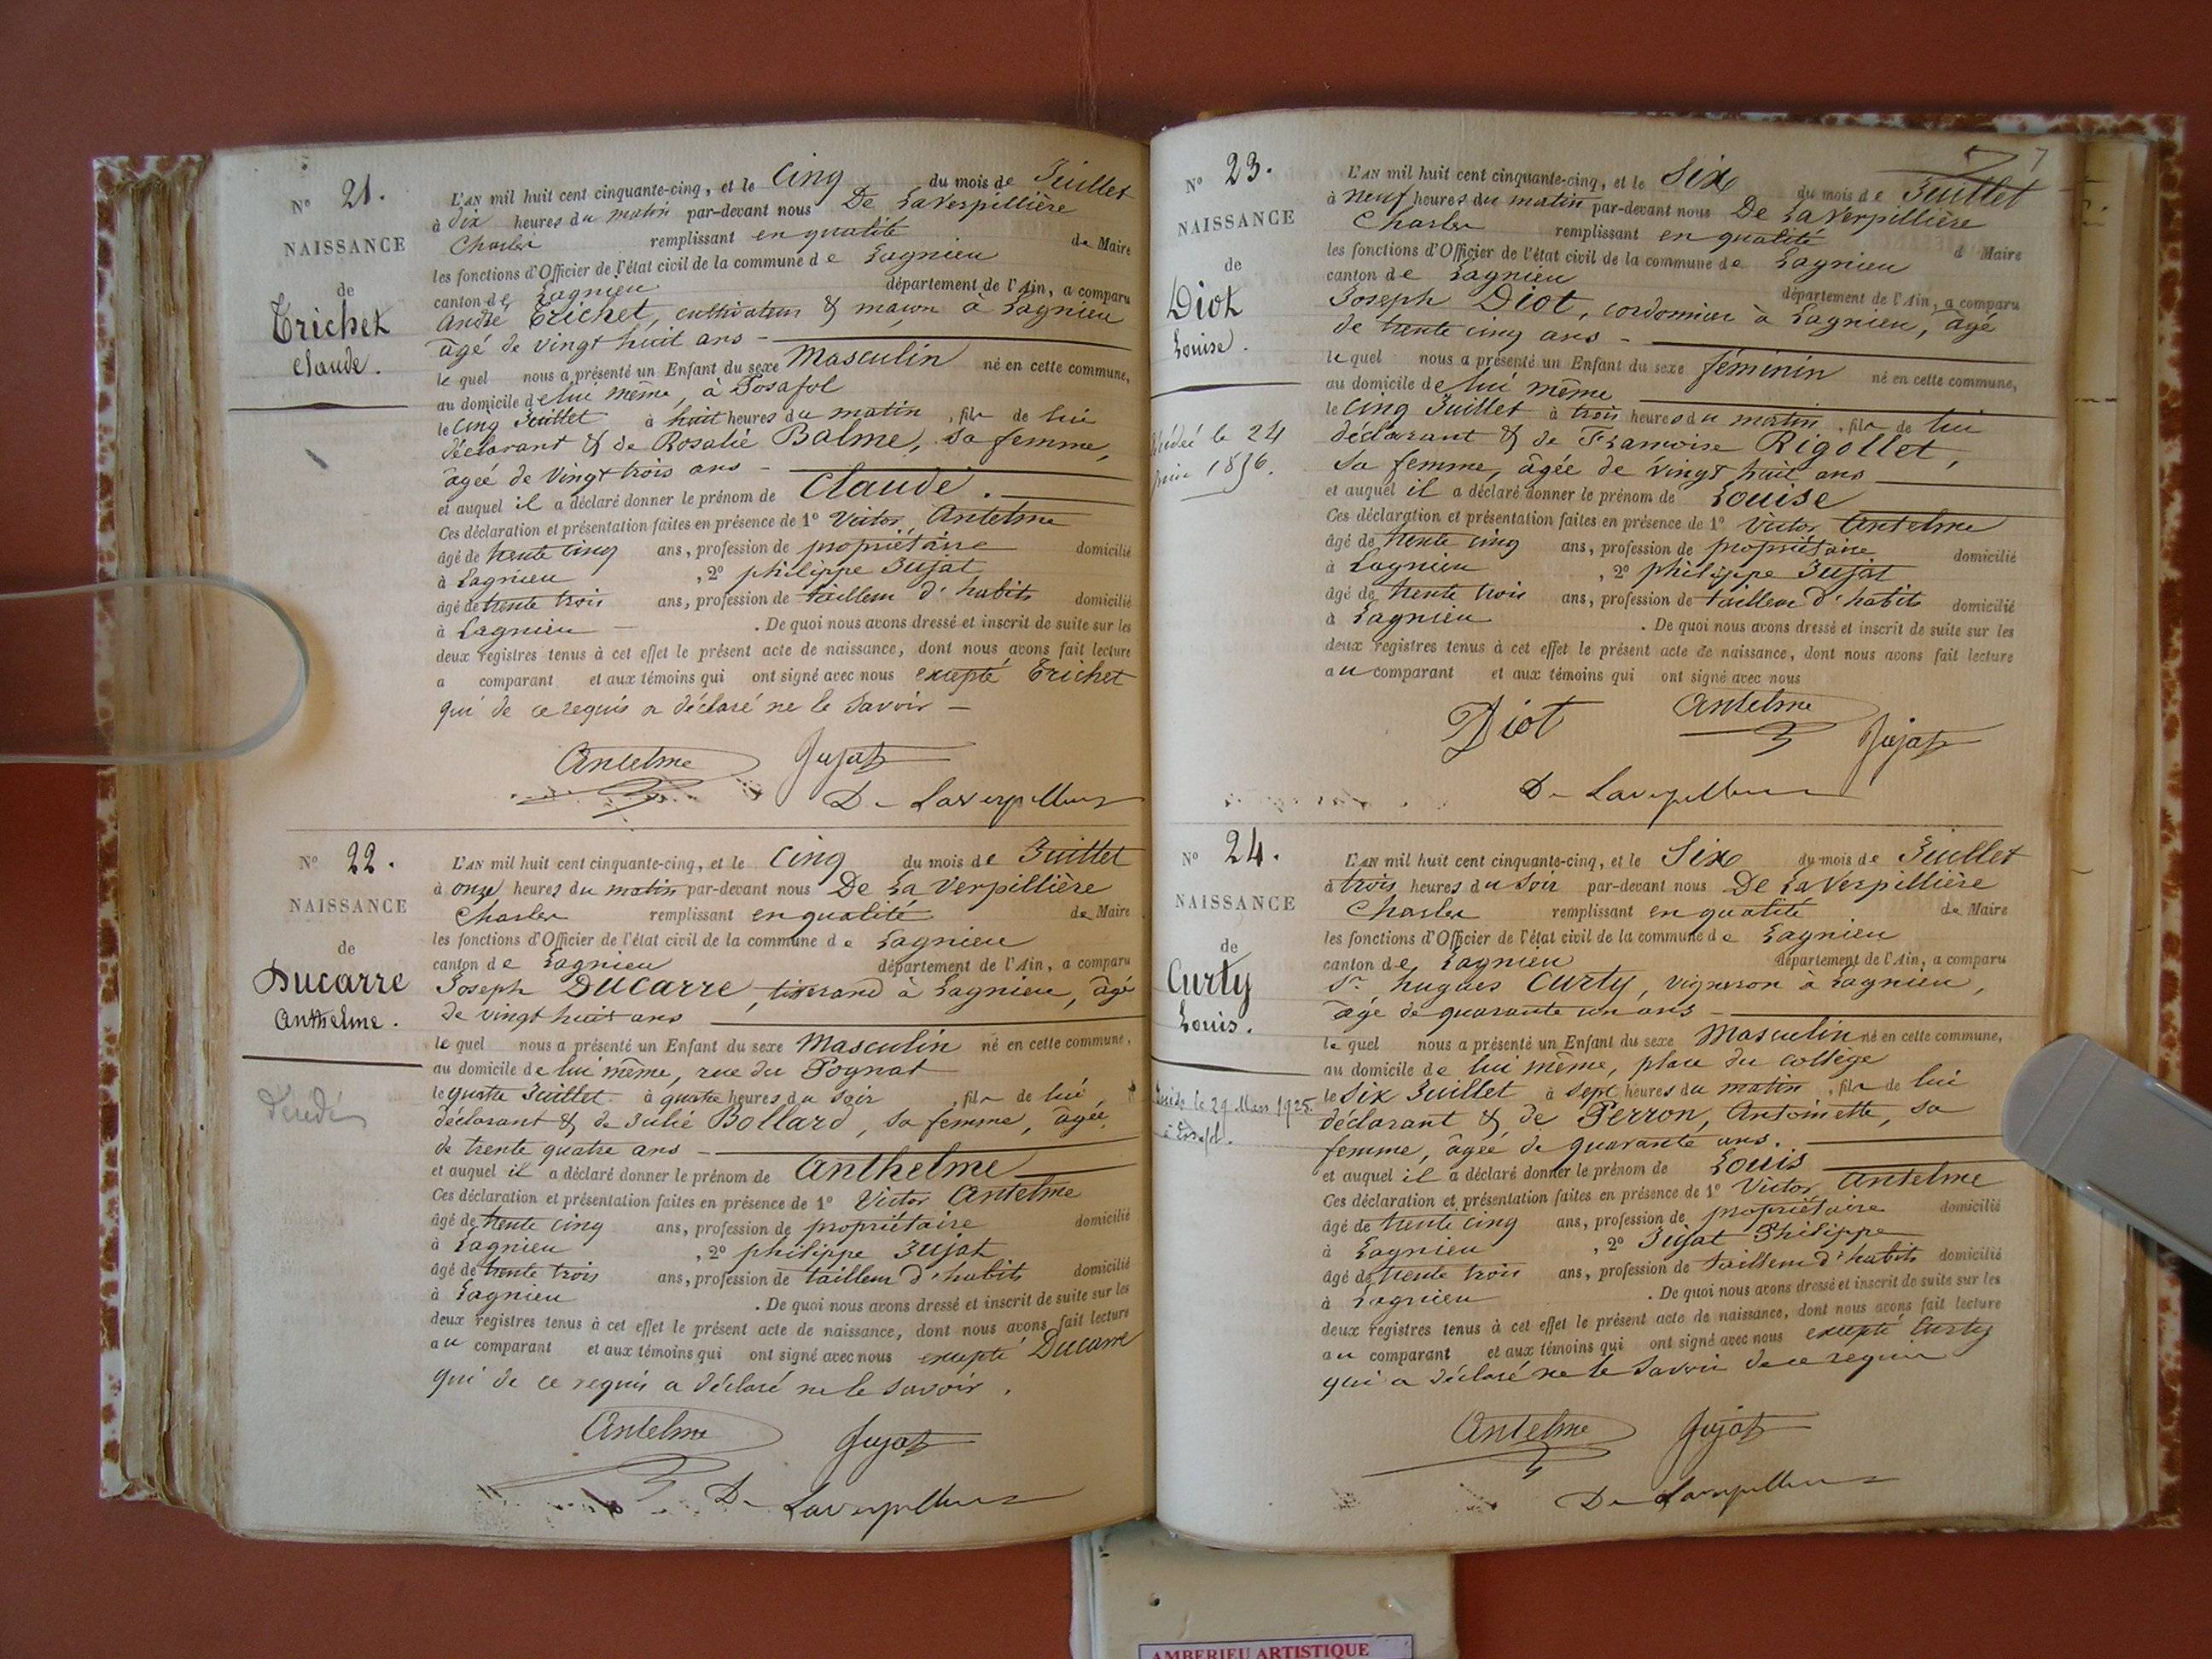 N° 21.
NAISSANCE
de
Trichet
Claude.
L'AN mil huit cent cinquante-cinq, et le Cinq du mois de Juillet
à dix heures du matin par-devant nous De LaVerpillière
Charles remplissant en qualité de Maire
les fonctions d'Officier de l'état civil de la commune de Lagnieu
canton de Lagnieu département de l'Ain, a comparu
André Trichet, cultivateur & maçon à Lagnieu
âgé de vingt huit ans
lequel nous a présenté un Enfant du sexe Masculin né en cette commune,
au domicile de lui même, à Posafol
le Cinq Juillet à huit heures du matin, fils de lui
déclarant & de Rosalie Balme, sa femme,
âgée de vingt trois ans
et auquel il a déclaré donner le prénom de Claude.
Ces déclaration et présentation faites en présence de 1° Victor Antelme
âgé de trente cinq ans, profession de propriétaire domicilié
à Lagnieu, 2° philippe Jujat
âgé de trente trois ans, profession de tailleur d'habits domicilié
à Lagnieu. De quoi nous avons dressé et inscrit de suite sur les
deux registres tenus à cet effet le présent acte de naissance, dont nous avons fait lecture
a comparant et aux témoins qui ont signé avec nous excepté Trichet
qui de ce requis a déclaré ne le savoir
Antelme Jujat
De Laverpilliere
N° 22.
NAISSANCE
de
Ducarre
Anthelme.
Décédé
L'AN mil huit cent cinquante-cinq, et le Cinq du mois de Juillet
à onze heures du matin par-devant nous De La Verpillière
Charles remplissant en qualité de Maire
les fonctions d'Officier de l'état civil de la commune de Lagnieu
canton de Lagnieu département de l'Ain, a comparu
Joseph Ducarre, tisserand à Lagnieu, âgé
de vingt huit ans
lequel nous a présenté un Enfant du sexe Masculin né en cette commune,
au domicile de lui même, rue du Pognat
le quatre Juillet à quatre heures du soir, fils de lui
déclarant & de Julie Bollard, sa femme, âgée
de trente quatre ans
et auquel il a déclaré donner le prénom de Anthelme
Ces déclaration et présentation faites en présence de 1° Victor Antelme
âgé de trente cinq ans, profession de propriétaire domicilié
à Lagnieu, 2° philippe Jujat
âgé de trente trois ans, profession de tailleur d'habits domicilié
à Lagnieu. De quoi nous avons dressé et inscrit de suite sur les
deux registres tenus à cet effet le présent acte de naissance, dont nous avons fait lecture
au comparant et aux témoins qui ont signé avec nous excepté Ducarre
qui de ce requis a déclaré ne le savoir.
Antelme Jujat
De Laverpilliere
7
N° 23.
NAISSANCE
de
Diot
Louise.
le 24
1856.
L'AN mil huit cent cinquante-cinq, et le Six du mois de Juillet
à neuf heures du matin par-devant nous De LaVerpillière
Charles remplissant en qualité d Maire
les fonctions d'Officier de l'état civil de la commune de Lagnieu
canton de Lagnieu département de l'Ain, a comparu
Joseph Diot, cordonnier à Lagnieu, âgé
de trente cinq ans
lequel nous a présenté un Enfant du sexe féminin né en cette commune,
au domicile de lui même
le Cinq Juillet à trois heures du matin, fils de lui
déclarant & de Françoise Rigollet,
sa femme, âgée de vingt huit ans
et auquel il a déclaré donner le prénom de Louise
Ces déclaration et présentation faites en présence de 1° Victor Antelme
âgé de trente cinq ans, profession de propriétaire domicilié
à Lagnieu, 2° philippe Jujat
âgé de trente trois ans, profession de tailleur d'habits domicilié
à Lagnieu. De quoi nous avons dressé et inscrit de suite sur les
deux registres tenus à cet effet le présent acte de naissance, dont nous avons fait lecture
au comparant et aux témoins qui ont signé avec nous
Diot Antelme Jujat
De Laverpilliere
N° 24.
NAISSANCE
de
Curty
Louis.
le 29 Mars 1925
L'AN mil huit cent cinquante-cinq, et le Six du mois de Juillet
à trois heures du soir par-devant nous De LaVerpillière
Charles remplissant en qualité de Maire
les fonctions d'Officier de l'état civil de la commune de Lagnieu
canton de Lagnieu département de l'Ain, a comparu
Sr. hugues Curty, vigneron à Lagnieu,
âgé de quarante un ans
lequel nous a présenté un Enfant du sexe Masculin né en cette commune,
au domicile de lui même, place du collège
le Six Juillet à sept heures du matin, fils de lui
déclarant & de Perron, Antoinette, sa
femme, âgée de quarante ans.
et auquel il a déclaré donner le prénom de Louis
Ces déclaration et présentation faites en présence de 1° Victor Antelme
âgé de trente cinq ans, profession de propriétaire domicilié
à Lagnieu, 2° Jujat Philippe
âgé de trente trois ans, profession de tailleur d'habits domicilié
à Lagnieu. De quoi nous avons dressé et inscrit de suite sur les
deux registres tenus à cet effet le présent acte de naissance, dont nous avons fait lecture
au comparant et aux témoins qui ont signé avec nous excepté Curty
qui a déclaré ne le savoir de ce requis
Antelme Jujat
De Laverpilliere
AMBERIEU ARTISTIQUE